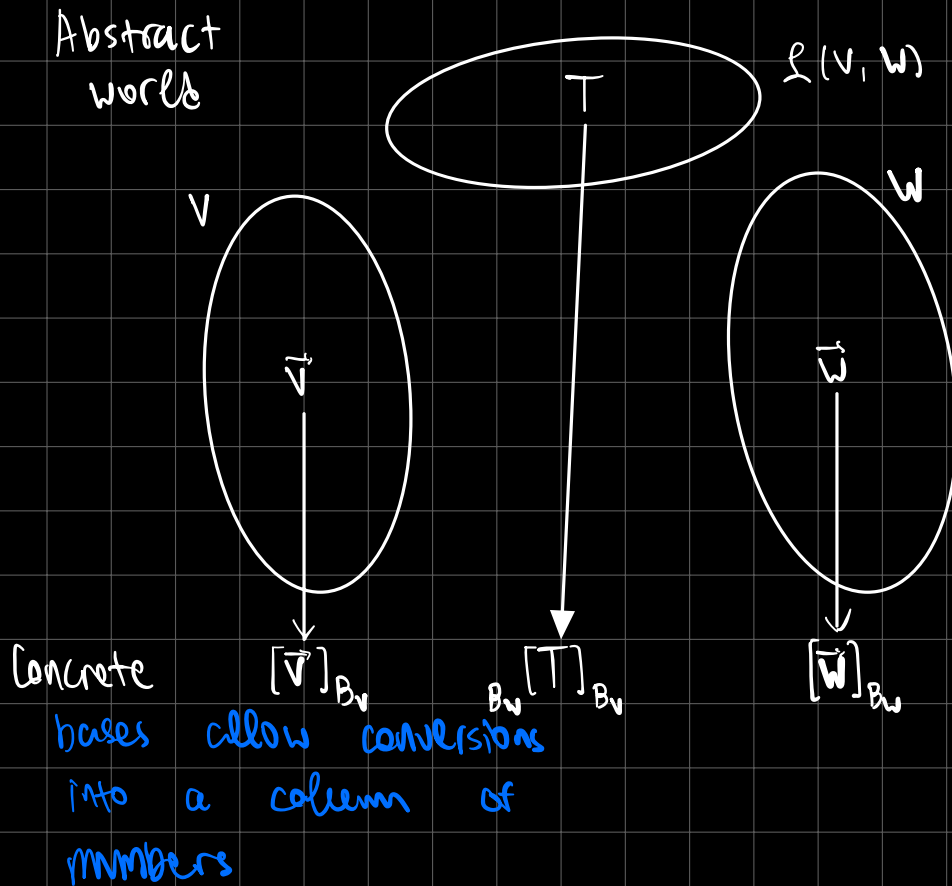 Abstract
world
T
ℒ(V, W)
V
W
v⃗
w⃗
Concrete
[v⃗]_{B_V}
_{B_W}[T]_{B_V}
[w⃗]_{B_W}
bases allow conversions
into a column of
numbers